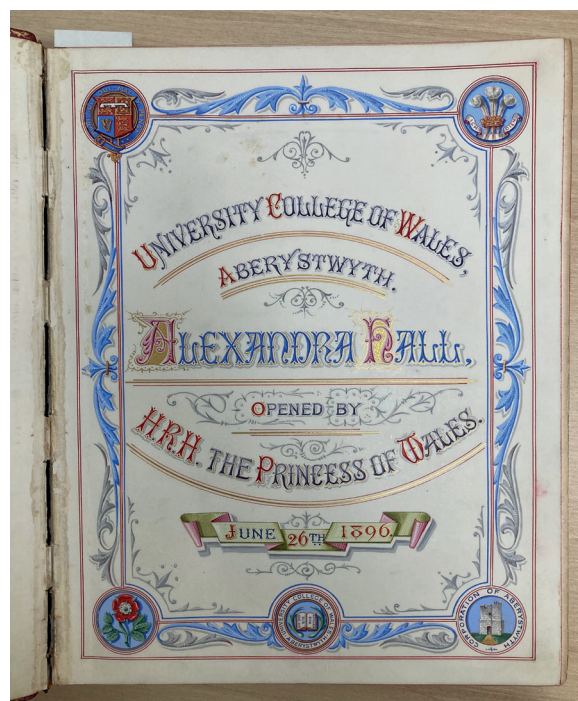 UNIVERSITY COLLEGE OF WALES,
ABERYSTWYTH.
ALEXANDRA HALL,
OPENED BY
H.R.H. THE PRINCESS OF WALES.
JUNE 26TH 1896.
UNIVERSITY COLLEGE OF WALES
CORPORATION OF ABERYSTWYTH